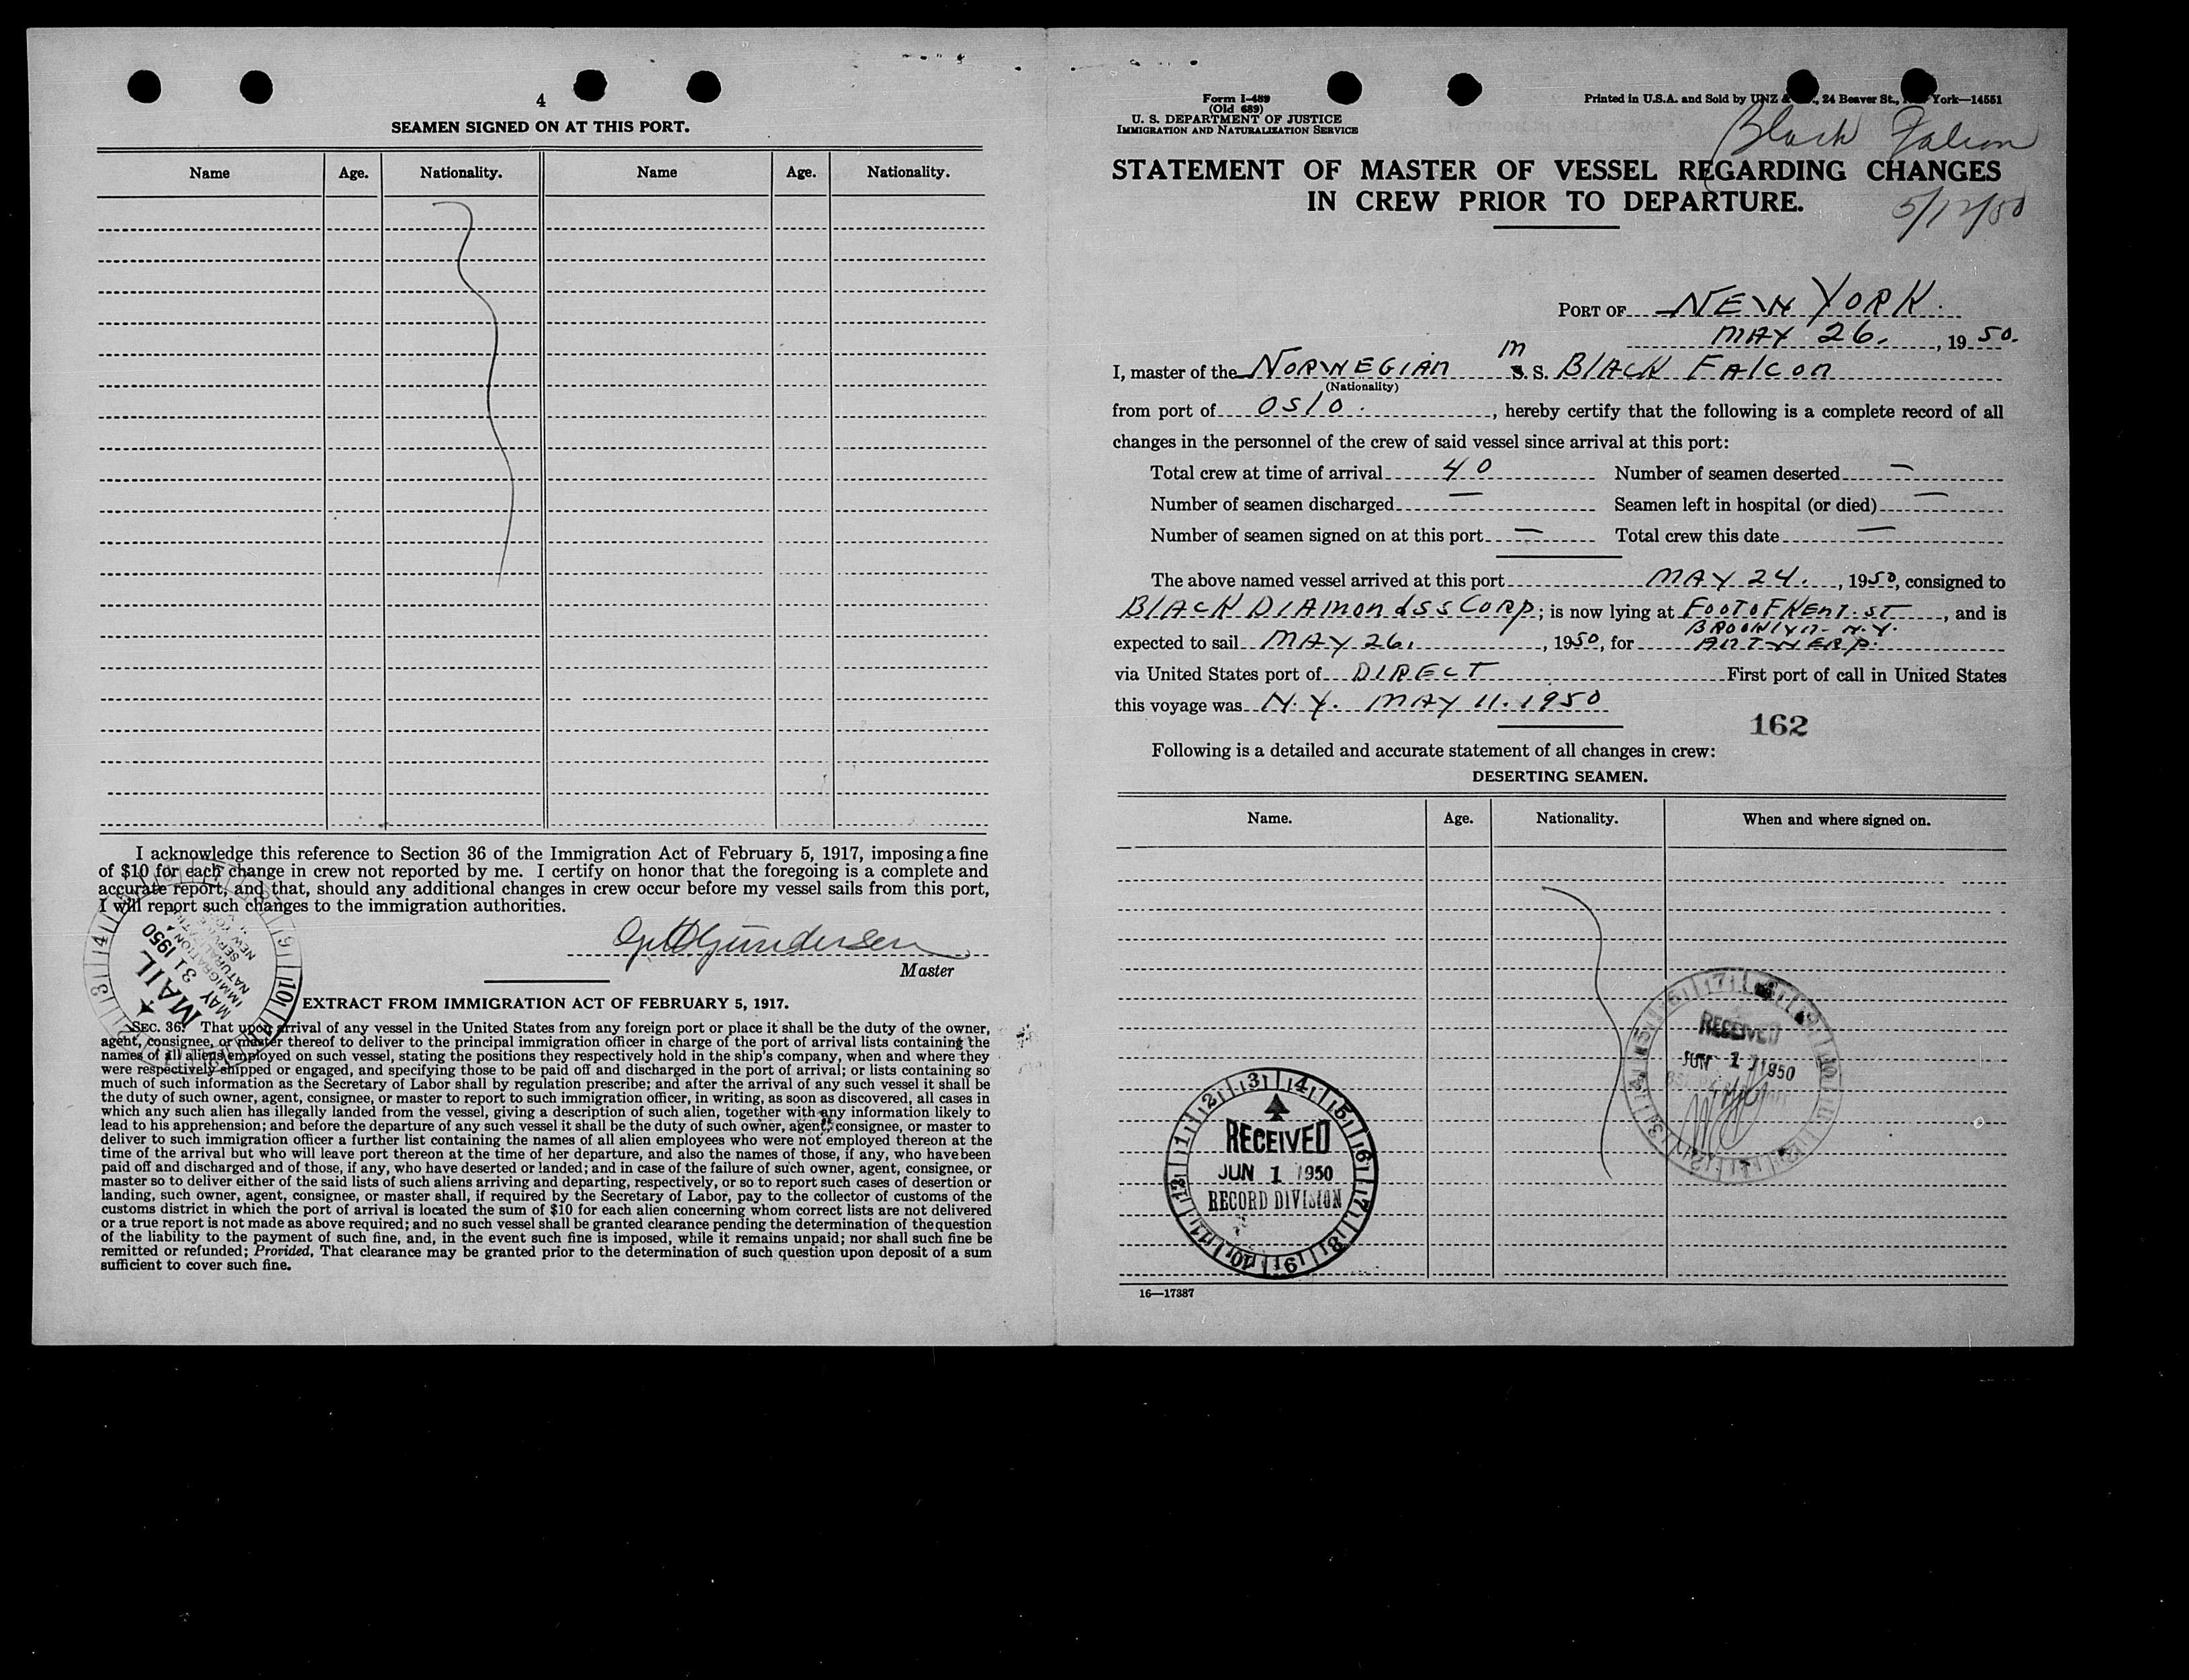 4
SEAMEN SIGNED ON AT THIS PORT.
Name Age. Nationality. Name Age. Nationality.
I acknowledge this reference to Section 36 of the Immigration Act of February 5, 1917, imposing a fine
of $10 for each change in crew not reported by me. I certify on honor that the foregoing is a complete and
accurate report, and that, should any additional changes in crew occur before my vessel sails from this port,
I will report such changes to the immigration authorities.
Gundersen
Master
MAIL
MAY 31 1950
IMMIGRATION &
NATURALIZATION
SERVICE
NEW YORK
EXTRACT FROM IMMIGRATION ACT OF FEBRUARY 5, 1917.
SEC. 36. That upon arrival of any vessel in the United States from any foreign port or place it shall be the duty of the owner,
agent, consignee, or master thereof to deliver to the principal immigration officer in charge of the port of arrival lists containing the
names of all aliens employed on such vessel, stating the positions they respectively hold in the ship's company, when and where they
were respectively shipped or engaged, and specifying those to be paid off and discharged in the port of arrival; or lists containing so
much of such information as the Secretary of Labor shall by regulation prescribe; and after the arrival of any such vessel it shall be
the duty of such owner, agent, consignee, or master to report to such immigration officer, in writing, as soon as discovered, all cases in
which any such alien has illegally landed from the vessel, giving a description of such alien, together with any information likely to
lead to his apprehension; and before the departure of any such vessel it shall be the duty of such owner, agent, consignee, or master to
deliver to such immigration officer a further list containing the names of all alien employees who were not employed thereon at the
time of the arrival but who will leave port thereon at the time of her departure, and also the names of those, if any, who have been
paid off and discharged and of those, if any, who have deserted or landed; and in case of the failure of such owner, agent, consignee, or
master so to deliver either of the said lists of such aliens arriving and departing, respectively, or so to report such cases of desertion or
landing, such owner, agent, consignee, or master shall, if required by the Secretary of Labor, pay to the collector of customs of the
customs district in which the port of arrival is located the sum of $10 for each alien concerning whom correct lists are not delivered
or a true report is not made as above required; and no such vessel shall be granted clearance pending the determination of the question
of the liability to the payment of such fine, and, in the event such fine is imposed, while it remains unpaid; nor shall such fine be
remitted or refunded; Provided, That clearance may be granted prior to the determination of such question upon deposit of a sum
sufficient to cover such fine.
Form I-489
(Old 689)
U. S. DEPARTMENT OF JUSTICE
IMMIGRATION AND NATURALIZATION SERVICE
Printed in U.S.A. and Sold by UNZ & , 24 Beaver St., York—14551
Black Falcon
STATEMENT OF MASTER OF VESSEL REGARDING CHANGES
IN CREW PRIOR TO DEPARTURE.
5/12/50
PORT OF NEW YORK.
MAY 26. , 1950.
I, master of the NORWEGIAN M S. S. BLACK FALCON
(Nationality)
from port of OSLO. , hereby certify that the following is a complete record of all
changes in the personnel of the crew of said vessel since arrival at this port:
Total crew at time of arrival 40 Number of seamen deserted —
Number of seamen discharged — Seamen left in hospital (or died) —
Number of seamen signed on at this port — Total crew this date —
The above named vessel arrived at this port MAY 24. , 1950, consigned to
BLACK DIAMOND SS CORP; is now lying at FOOT OF KENT. ST , and is
BROOKLYN- N.Y.
expected to sail MAY 26. , 1950, for ANTWERP.
via United States port of DIRECT First port of call in United States
this voyage was N.Y. MAY 11. 1950
162
Following is a detailed and accurate statement of all changes in crew:
DESERTING SEAMEN.
Name. Age. Nationality. When and where signed on.
RECEIVED
JUN 1 1950
RECEIVED
JUN 1 1950
RECORD DIVISION
16—17387